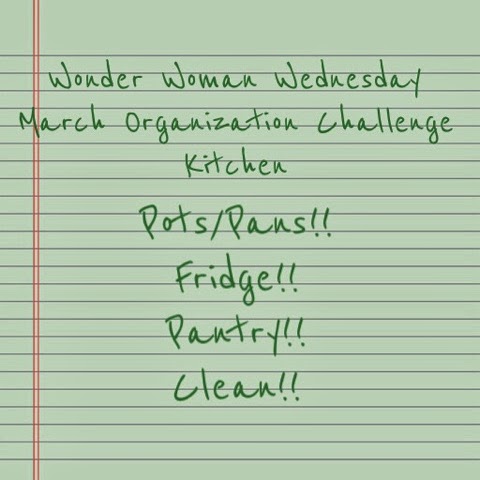 Wonder Woman Wednesday
March Organization Challenge
Kitchen
Pots/Pans!!
Fridge!!
Pantry!!
Clean!!